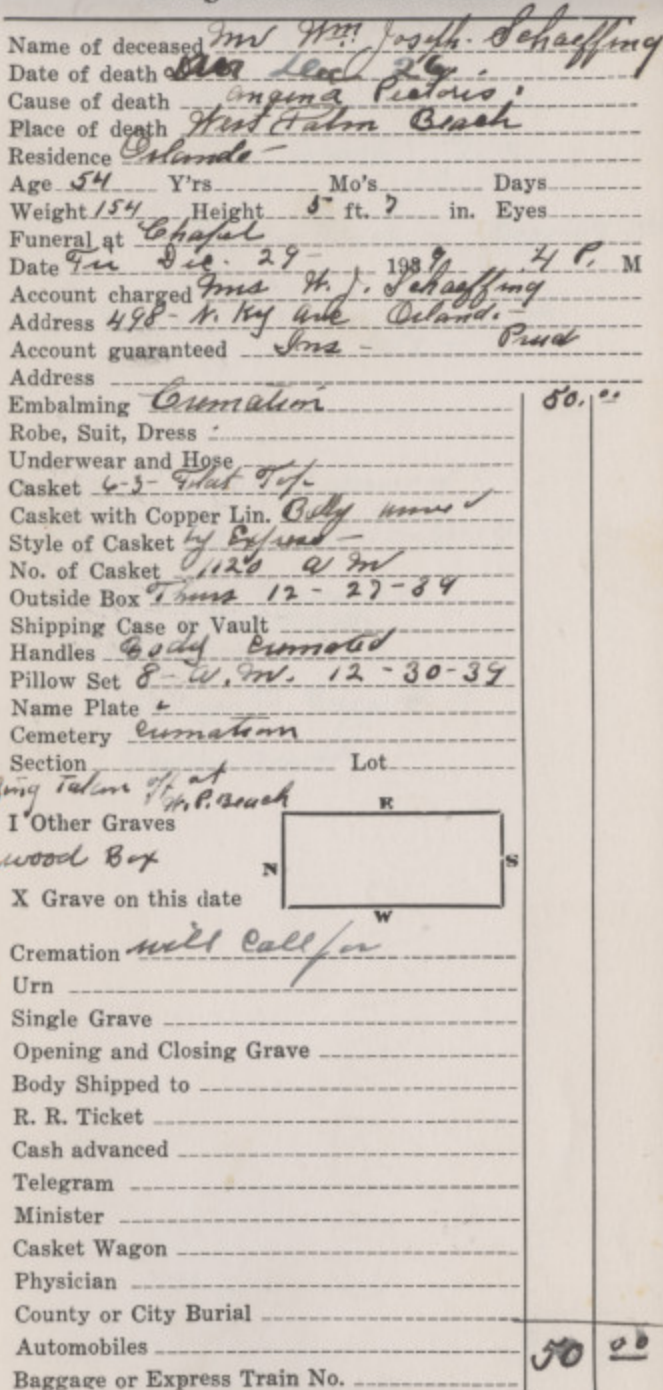 Name of deceased Mr Wm. Joseph. Schaeffing
Date of death Dec 26.
Cause of death angina Pectoris.
Place of death West Palm Beach
Residence Orlando -
Age 54 Y'rs Mo's Days
Weight 154 Height 5 ft. 7 in. Eyes
Funeral at Chapel
Date Fri Dec. 29 - 1939 4 P. M
Account charged Mrs W. J. Schaeffing
Address 498 - N. Ky ave Orland. -
Account guaranteed Ins - Prud
Address
Embalming Cremation 50. 00
Robe, Suit, Dress
Underwear and Hose
Casket 6-3- Flat Top
Casket with Copper Lin. Body
Style of Casket by Express -
No. of Casket 1120 a m
Outside Box Thurs 12 - 27 - 39
Shipping Case or Vault
Handles Body Cremated
Pillow Set 8 - a. m. 12 - 30 - 39
Name Plate
Cemetery Cremation
Section Lot
ing Taken off at
W. P. Beach
E
I Other Graves
wood Box
N S
X Grave on this date
W
Cremation will Call for
Urn
Single Grave
Opening and Closing Grave
Body Shipped to
R. R. Ticket
Cash advanced
Telegram
Minister
Casket Wagon
Physician
County or City Burial
Automobiles 50 00
Baggage or Express Train No.